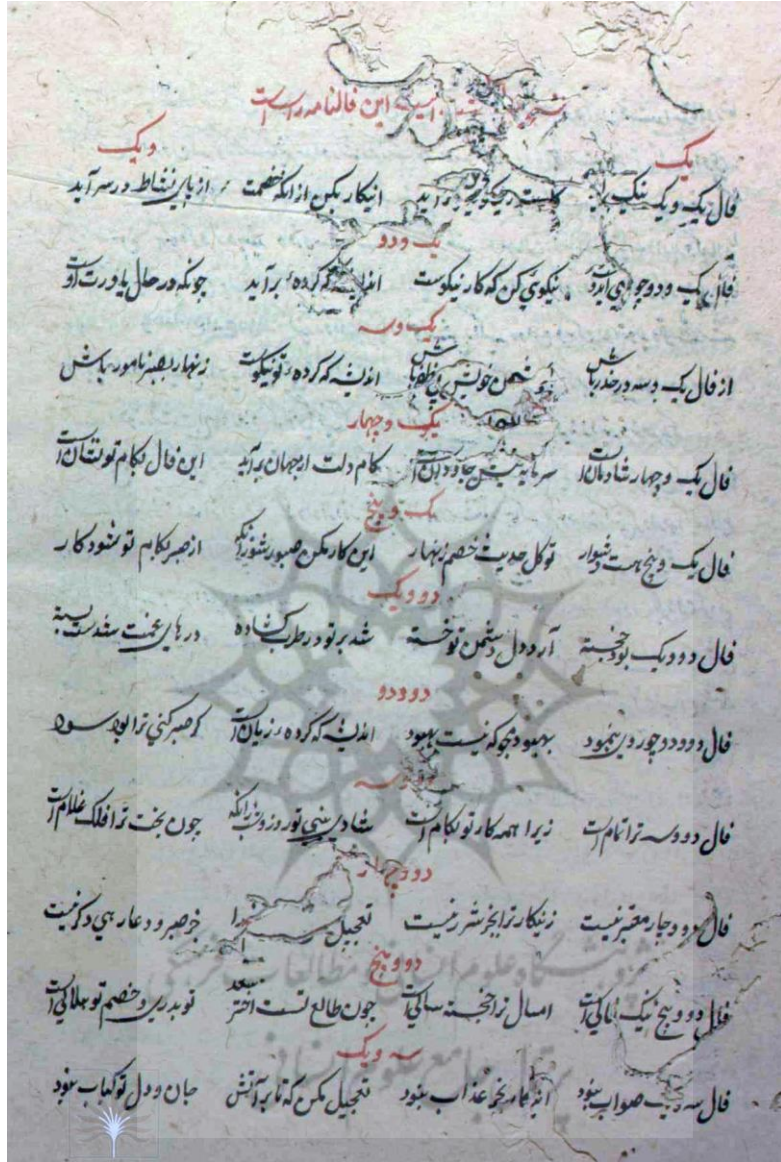 این فالنامه راست
یک و یک
فال یک و یک نیک براید در آید اینکار مکن از آنکه خصمت از پای نشاط در سر آید
یک و دو
فال یک و دو چو نیکوئی کن که کار نیکوست اندیشه که کرده ٔ بر آید چونکه در حال یاورت اوست
یک و سه
از فال یک و سه در حذر باش خویش باش اندیشه که کرده ٔ تو نیکوست زنهار بصبر نامور باش
یک و چهار
فال یک و چهار شادمان است سرمایه جاودان است کام دلت از جهان بر آید این فال بکام تو نشان است
یک و پنج
فال یک و پنج هست دشوار تو کل حدیث خصم زنهار این کار مکن صبور شو زانکه از صبر بکام تو شود کار
دو و یک
فال دو و یک بود خجسته آرد دل دشمن تو خسته شد بر تو در طرب گشاده درهای غمت شدست بسته
دو و دو
فال دو و دو چو روی بنمود بهبود مجو که نیست بهبود اندیشه که کرده ٔ زیان است گر صبر کنی ترا بود سود
و سه
فال دو و سه ترا تمام است زیرا همه کار تو بکام است شادی بینی تو روز و شب زانکه چون بخت ترا فلک غلام است
دو و چهار
فال دو و چار معتبر نیست زینکار ترا بجز شرر نیست تعجیل جز صبر و دعا رهی دگر نیست
دو و پنج
فال دو و پنج نیک است امسال ترا خجسته سالی است چون طالع تست اختر سعد تو بدری و خصم تو هلالی است
سه و یک
فال سه و یک صواب نبود بجز عذاب نبود تعجیل مکن که تا بر آتش جان و دل تو کباب نبود
پژوهشگاه علوم انسانی و مطالعات فرهنگی
پرتال جامع علوم انسانی